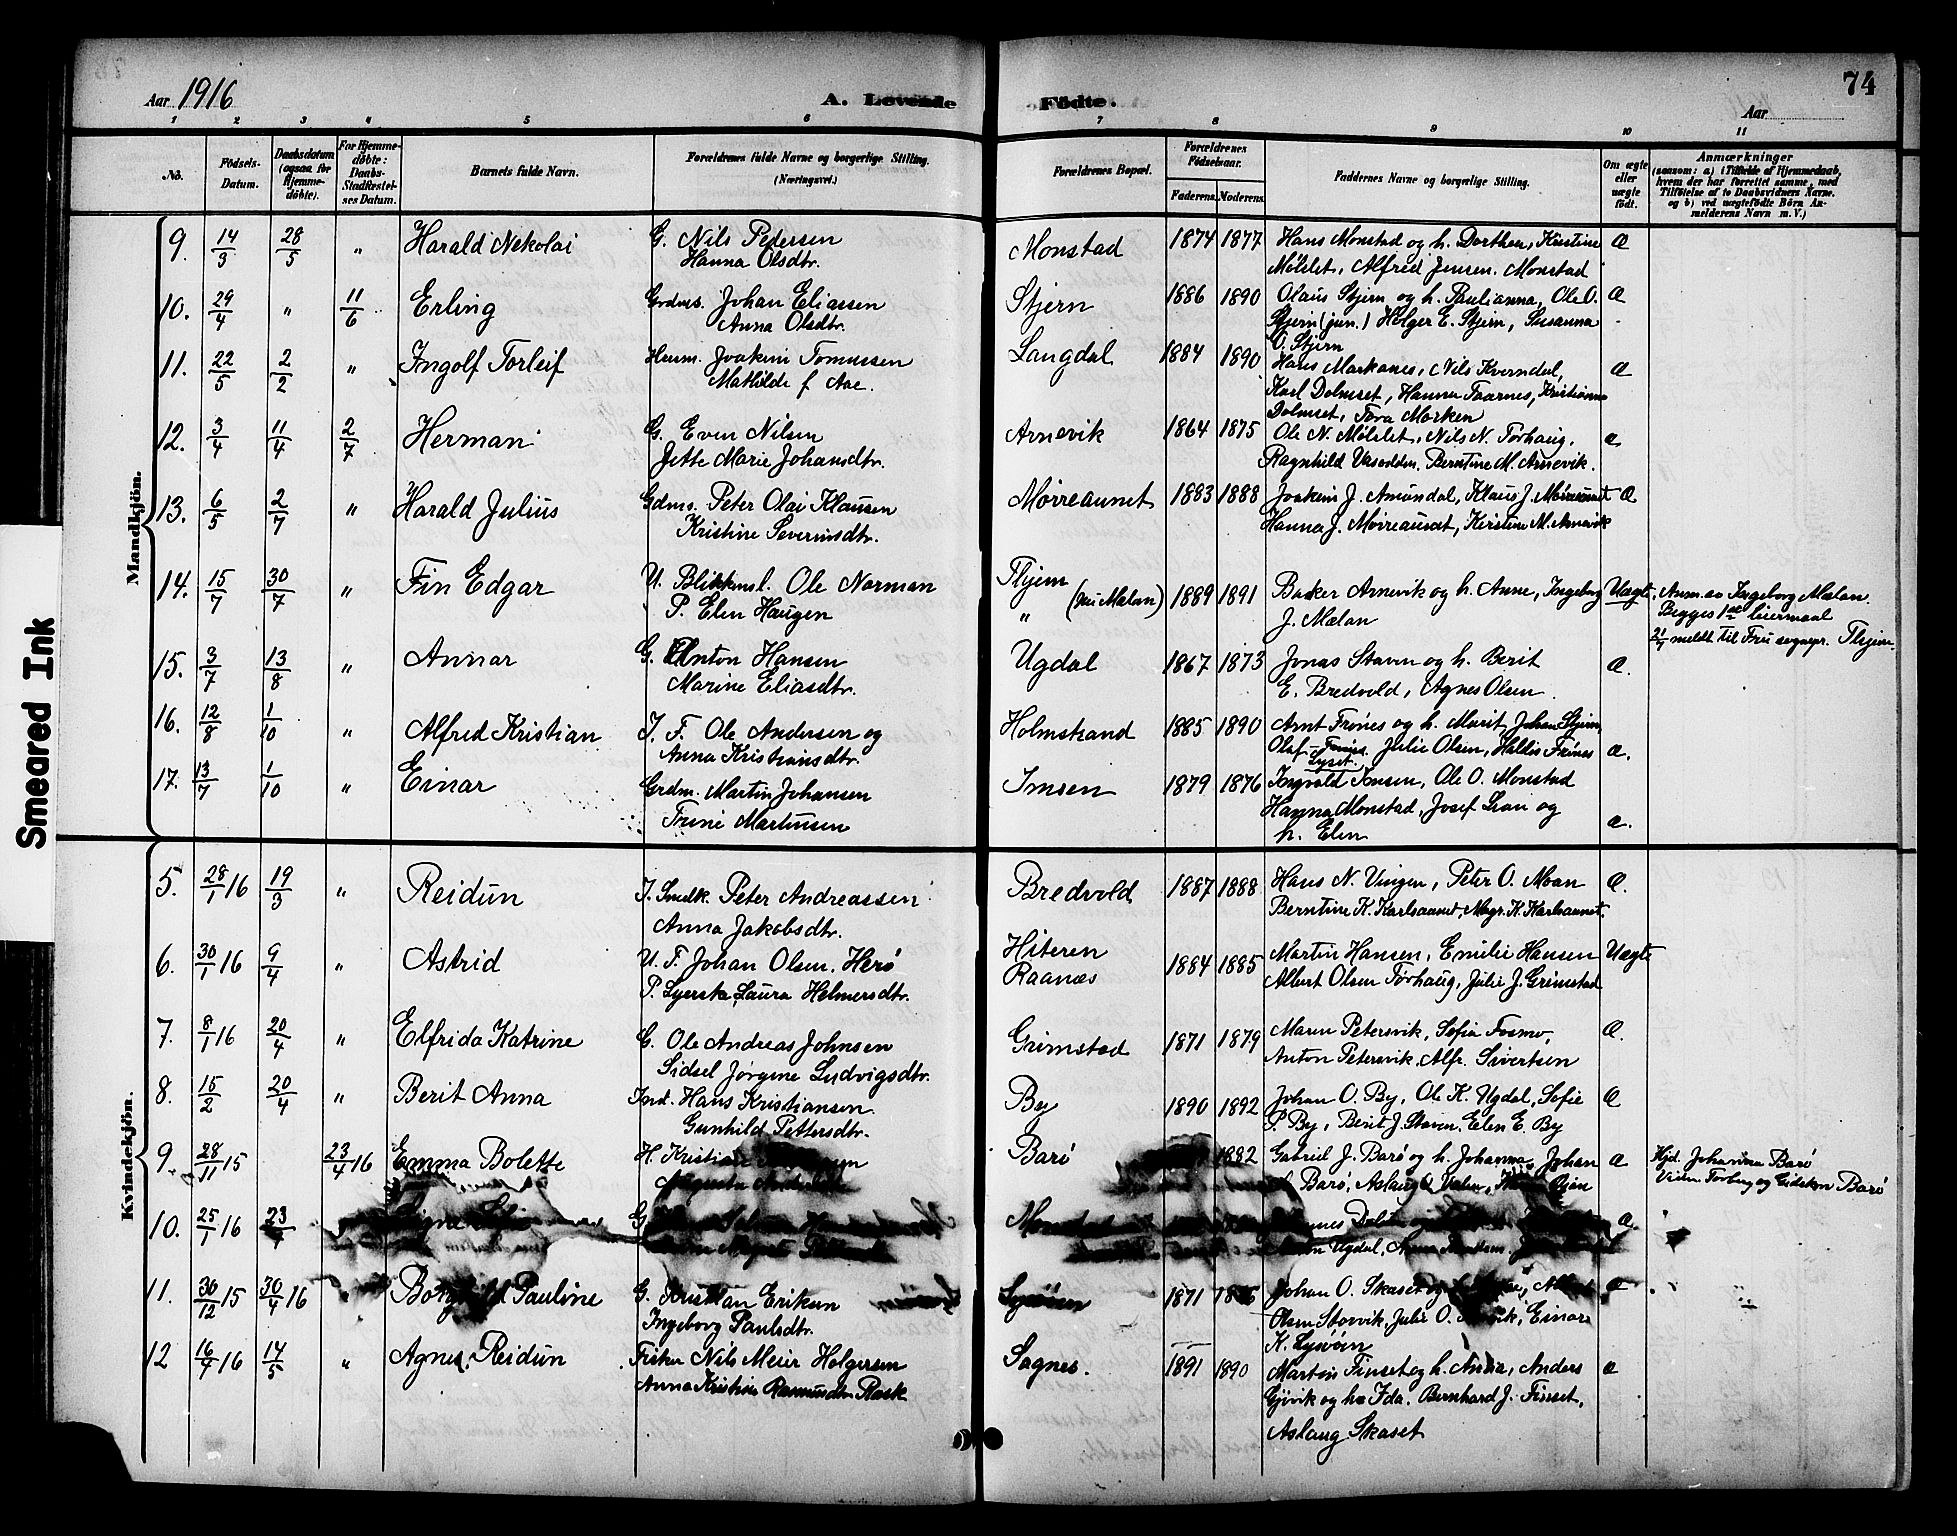 74
Aar 1916
A. Levende
Fødte.
Aar
1 2 3 4 5 6 7 8 9 10 11
No.
Fødsels-Datum.
Daabsdatum (ogsaa for Hjemmedøbte).
For Hjemmedøbte: Daabs-Stadfestelses Datum.
Barnets fulde Navn.
Forældrenes fulde Navne og borgerlige Stilling. (Næringsvei.)
Forældrenes Bopæl.
Forældrenes Fødselsaar.
Faderens. Moderens.
Faddernes Navne og borgerlige Stilling.
Om ægte eller uægte født.
Anmærkninger
(saasom: a) i Tilfælde af Hjemmedaab, hvem der har forrettet samme, med Tilføielse af to Daabsvidners Navne, og b) ved uægtefødte Børn Anmelderens Navn m. V.)
Smeared Ink
Mandkjøn.
9. 14/3 28/5 " Harald Nekolai G. Nils Pedersen Monstad 1874 1877 Hans Monstad og h. Dorthea, Kristine Æ
Hanna Olsdtr. Mölslet, Alfred Jensen. Monstad
10. 29/4 " 11/6 Erling Grdms. Johan Eliassen Stjern 1886 1890 Olaus Stjern og h. Paulianna, Ole O. Æ
Anna Olsdtr. Stjern (jun.) Holger E. Stjern, Susanna
O. Stjern
11. 22/5 2/2 " Ingolf Torleif Husm. Joakim Tomassen Langdal 1884 1890 Hans Markanes, Nils Kverndal, Æ
Mathilde f. Aae. Karl Dolmset, Hanna Taarnes, Kristianna
Dolmset, Tora Morken
12. 3/4 11/4 2/7 Herman G. Even Nilsen Arnevik 1864 1875 Ole N. Mölslet, Nils N. Torhaug, æ
Jette Marie Johansdtr. Ragnhild Vasodden. Berntine M. Arnevik.
13. 6/5 2/7 " Harald Julius Gdms. Peter Olai Klausen Mørreaunet 1883 1888 Joakim J. Amundal, Klaus J. Mørreaunet Æ
Kristine Severinsdtr. Hanna J. Mørreaunet, Kirstine M. Arnevik
14. 15/7 30/7 " Fin Edgar U. Blikkensl. Ole Norman Thjem 1889 1891 Backer Arnevik og h. Anne, Ingeborg Uægte. Anm. av Ingeborg Mælan.
P. Elen Haugen " (nu Mælan) J. Mælan Begges 1ste leiermaal
21/7 meldt til Fru sognepr. Thjem.
15. 3/7 13/8 " Annar G. Anton Hansen Ugdal 1867 1873 Jonas Staven og h. Berit æ.
Marine Eliasdtr. E. Bredvold, Agnes Olsen
16. 12/8 1/10 " Alfred Kristian I. F. Ole Andersen og Holmstrand 1885 1890 Arnt Frönes og h. Marit, Johan Stjern,
Anna Kristiansdtr. Olaf Lyset. Julie Olsen, Hallis Frönes æ.
17. 13/7 1/10 " Einar Grdm. Martin Johansen Imsen 1879 1876 Ingvald Imsen, Ole O. Monstad
Trine Martinsen Hanna Monstad, Josef Gran og
h. Elen æ.
Kvindekjøn.
5. 28/1 16 19/3 " Reidun I. Smedk. Peter Andreassen Bredvold 1887 1888 Hans N. Vingen, Peter O. Moan Æ.
Anna Jakobsdtr. Berntine K. Karlsaunet, Magr. K. Karlsaunet.
6. 30/1 16 9/4 " Astrid U. F. Johan Olsen. Herö Hiteren 1884 1885 Martin Hansen, Emilie Hansen Uægte
P. Syerske Laura Helmersdtr. Raanæs Albert Olsen Torhaug, Julie J. Grimstad
7. 8/1 16 20/4 " Elfrida Katrine G. Ole Andreas Johnsen Grimstad 1871 1879 Maren Petersvik, Sofia Fosmo, Æ.
Sidsel Jørgine Ludvigsdtr. Anton Petersvik, Alfr. Sivertsen
8. 15/2 20/4 " Berit Anna Ind. Hans Kristiansen By 1890 1892 Johan O. By, Ole K. Ugdal, Sofie Æ
Gunhild Pettersdtr. P. By, Berit J. Staven, Elen E. By
9. 28/11 15 23/4 16 Emma Bolette H. Kristian Barö 1882 Gabriel J. Barö og h. Johanna, Johan æ Hjd. Johanna Barö
Augusta Barö, Aslaug Vidn. Torberg og Gideken Barö
10. 25/1 16 23/4 Signe G. æ.
Ugdal, Anna
11. 30/12 15 30/4 16 Borghild Pauline G. Kristian Eriksen Lysöen 1871 Johan O. Skaset og æ
Ingeborg Paulsdtr. Olsen Storvik, Julie O. Einar
K. Lysöön
12 16/4 16 14/5 " Agnes Reidun Fisker Nils Meier Holgersen Sagnes. 1891 1890 Martin Finset og h. Anna, Anders æ
Anna Kristine Rasmussen Rask Gjövik og h. Ida. Bernhard J. Finset,
Aslaug Skaset